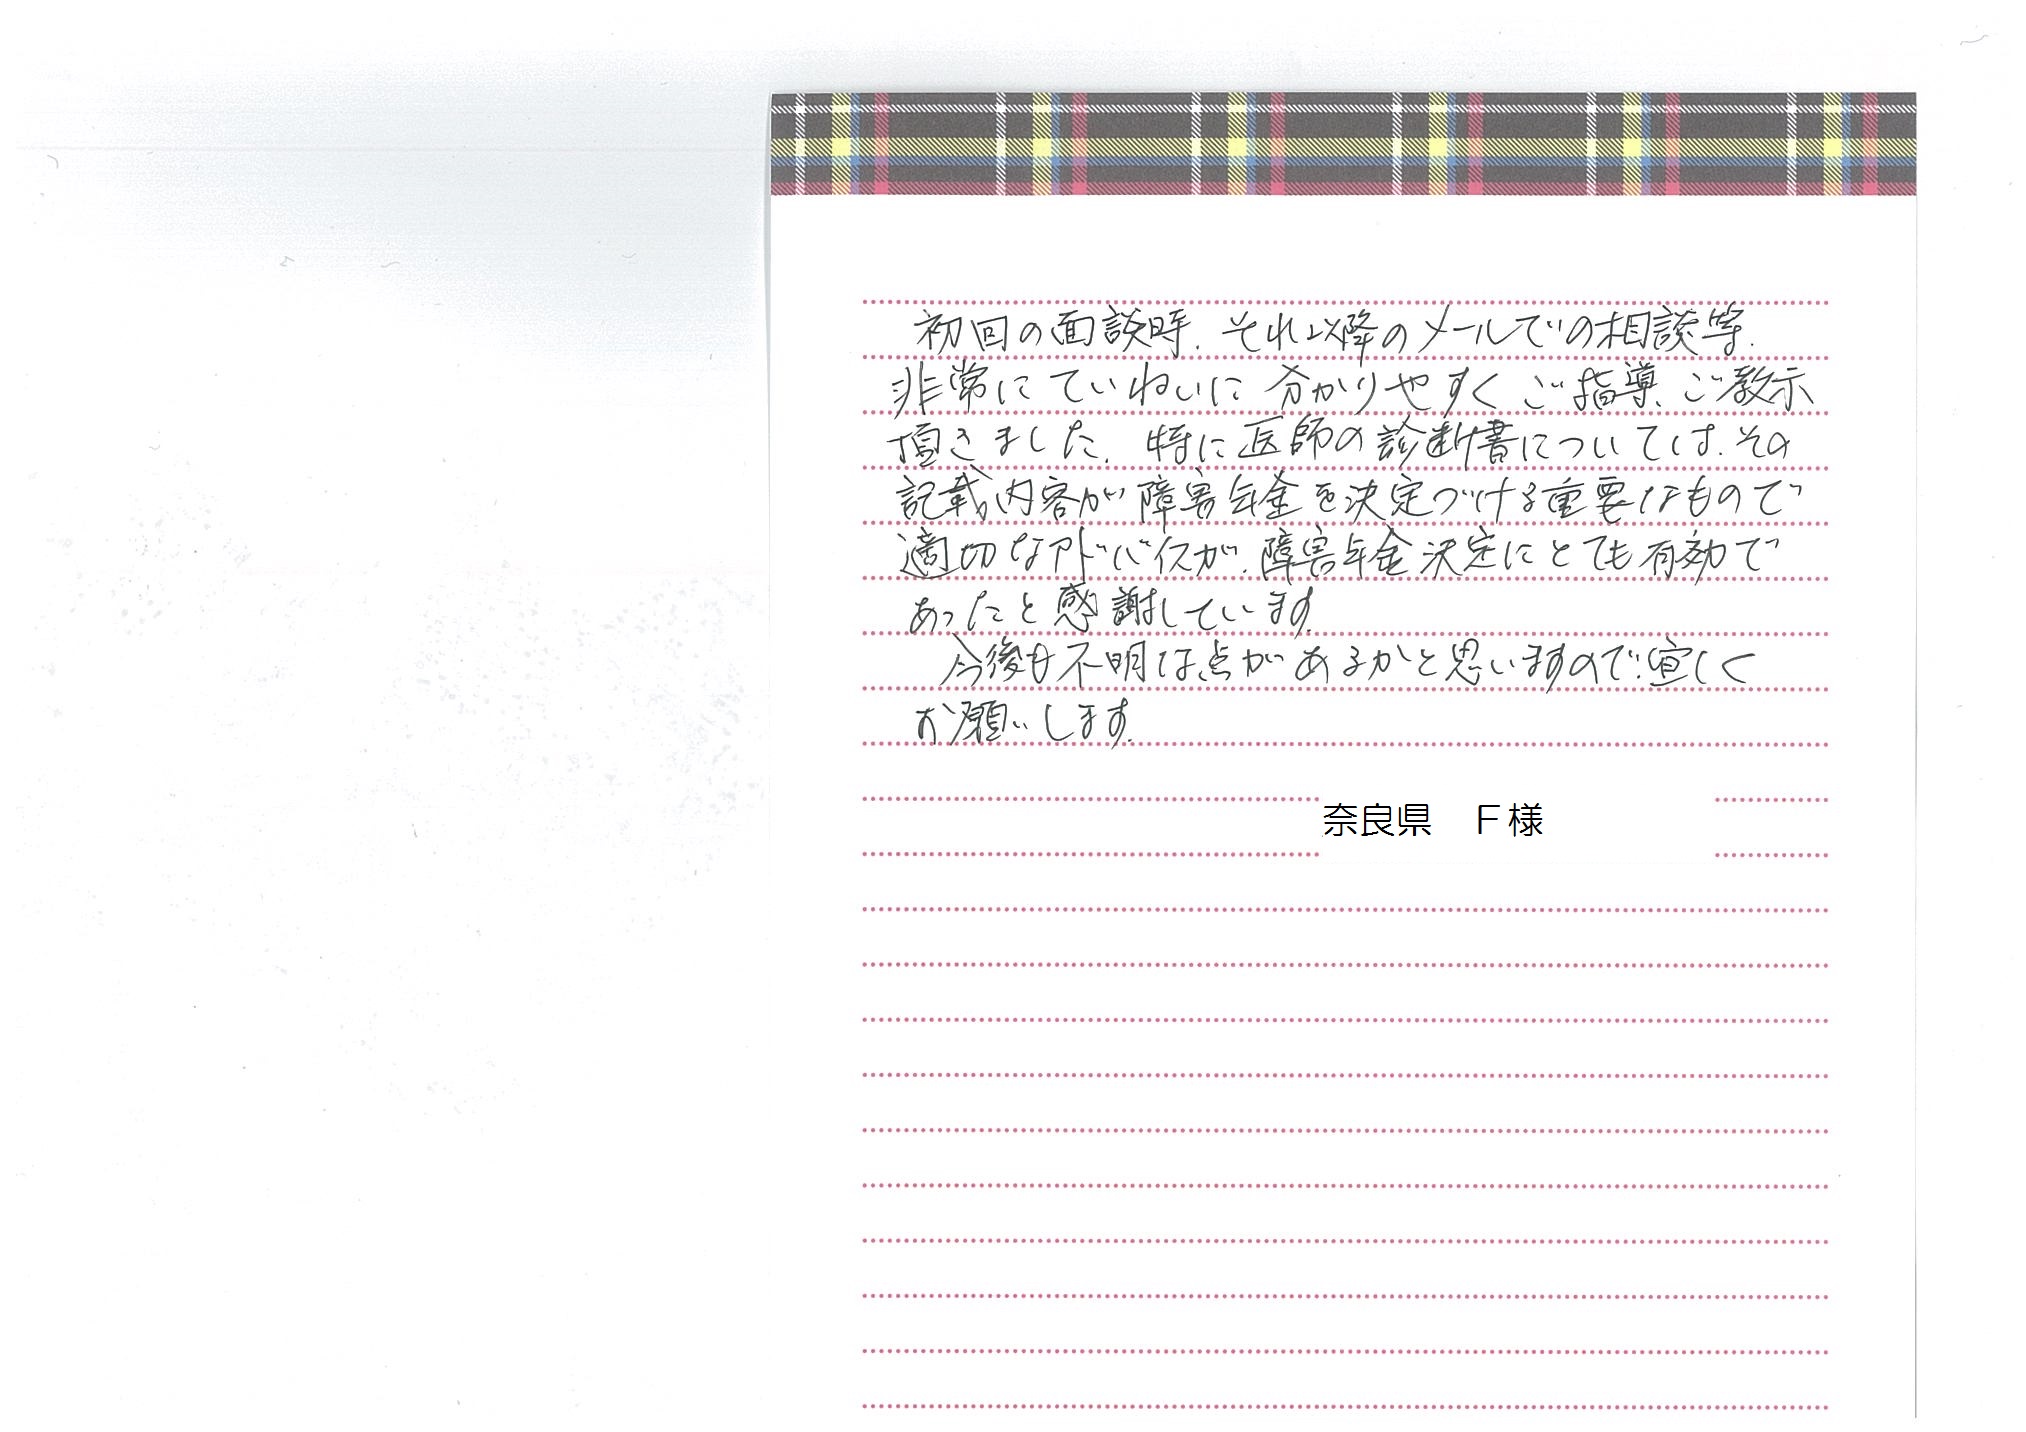 初回の面談時、それ以降のメールでの相談等、
非常にていねいに分かりやすくご指導、ご教示
頂きました。特に医師の診断書については、その
記載内容が障害年金を決定づける重要なもので
適切なアドバイスが、障害年金決定にとても有効で
あったと感謝しています。
今後も不明な点があるかと思いますので、宜しく
お願いします。
奈良県　F様